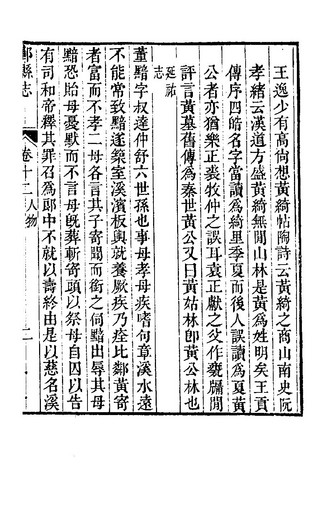 王逸少有高尚想黃綺帖陶詩云黃綺之商山南史阮
孝緒云漢道方盛黃綺無閒山林是黃為姓明矣王貢
傳序四皓名字當讀為綺里季夏而後人誤讀為夏黃
公者亦猶樂正裘牧仲之誤耳袁正獻之父作甕牖閒
評言黃墓舊傳為秦世黃公又曰黃姑林卽黃公林也
延祐志
董黯字叔達仲舒六世孫也事母孝母疾嗜句章溪水遠
不能常致黯遂築室溪濱板輿就養厥疾乃痊比鄰黃寄
者富而不孝二母各言其子寄聞而銜之伺黯出辱其母
黯恐貽母憂默而不言母旣葬斬寄頭以祭母自囚以告
有司和帝釋其罪召為郎中不就以壽終由是以慈名溪
鄞縣志
卷十二 人物
二